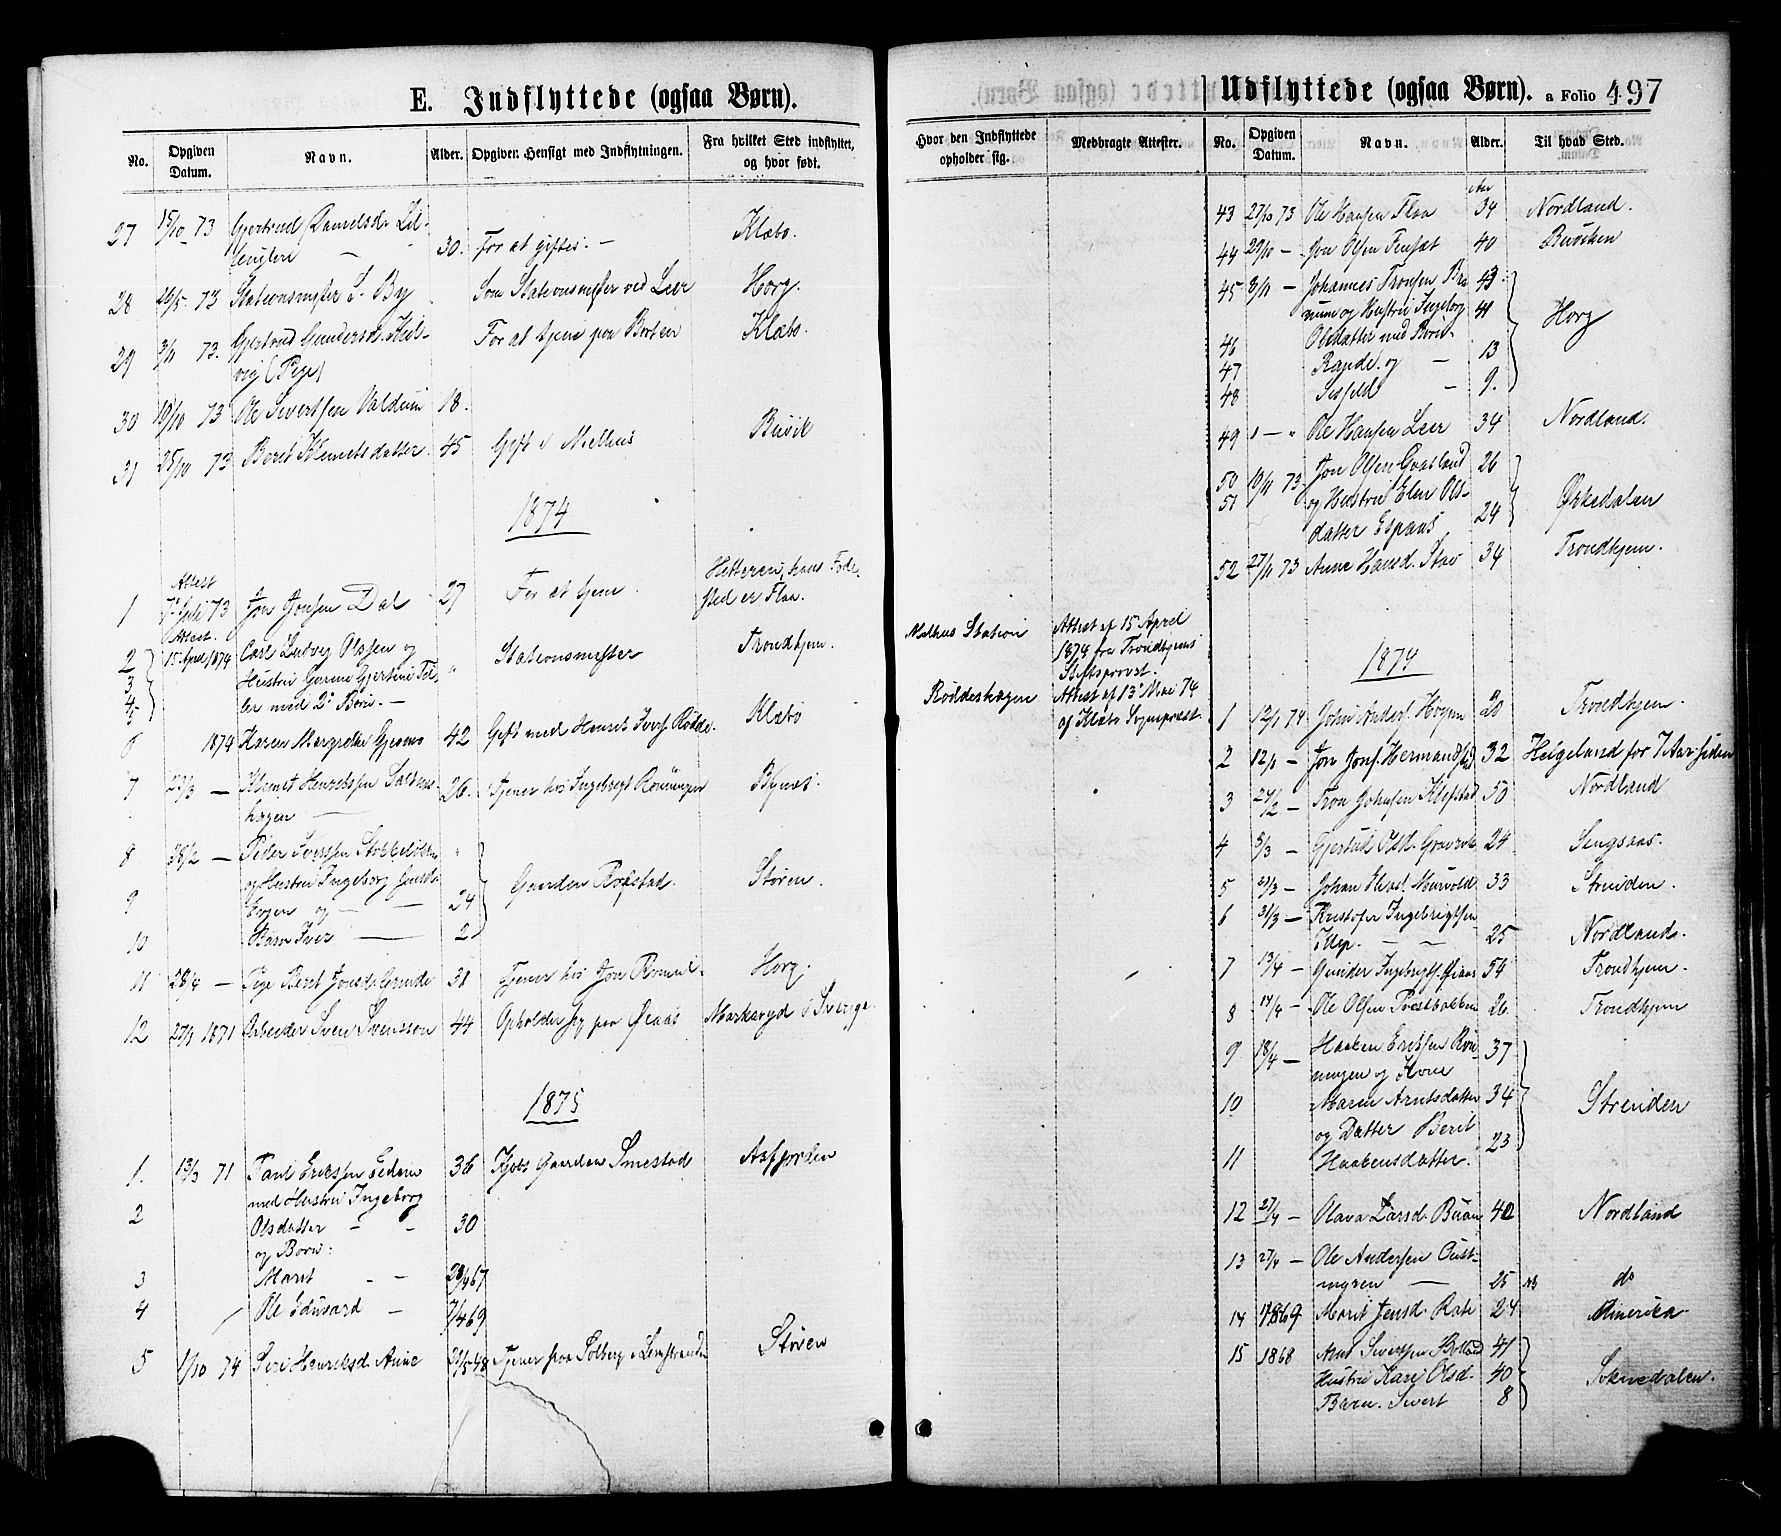 E. Indflyttede (ogsaa Børn).
No. Opgiven Datum. Navn. Alder. Opgiven Hensigt med Indflytningen. Fra hvilket Sted indflyttet, og hvor født.
27 15/10 73 Gjertrud Danielsd. 30. For at giftes. – Klæbo.
28 26/5 73 Stationsmester S. By Som Stationsmester ved Leer Horg.
29 3/11 73. Gjertrud Gundersd. For at tjene paa Borten Klæbo.
vig (Pige)
30 10/10 73 Ole Sivertsen Valdum 18.
31 25/10 73 Beret Klemetsdatter 45 Gift i Melhus Buvik
1874
Attest
1 73 Jon Jonsen Dal 27 For at tjene Hitteren, hans Føde-
sted er Flaa.
Attest.
2 15 April 1874 Carl Ludvig Olssen og " Stationsmester Trondhjem.
3 Hustru Gjertine
4 5 ler med 2 Børn. –
6 1874 Karen Margrethe 42 Gift med Henrik Ivers. Rødde. Klæbo
7 23/3 – Klemet Henrikssen 26. Tjener hos Ingebrigt Rønningen Bynes.
hagen –
8 28/2 – Peder Iverssen "
9 og Hustru Ingeborg 24 Gaarden Rofstad. Støren.
og –
10 Barn Iver – 2
11 28/4 – Pige Beret Jonsd. Grinde 31 Tjener hos Jon Horg.
12 27/3 1871 Arbeider Sven Svensson 44 Opholder sig paa Øiaas Markaryd i Sverige.
1875
1. 13/3 71 Paul Eriksen 36 Kjøbt Gaarden Smestad Aafjorden
med Hustru Ingeborg
2 Olsdatter – – 30
og Børn:
3 Marit – – 23/4 67
4 Ole Edvard – 7/4 69
5 1/10 74 Siri Henriksd. Aune 21/5 48 Tjener paa Solberg i Leinstranden Støren
Hvor den Indflyttede opholder sig. Medbragte Attester.
Melhus Station Attest af 15 April
1874 fra Trondhjems
Stiftsprovst.
Røddeshagen Attest af 13 Mai 74
af Klæbo Sognepræst.
Udflyttede (ogsaa Børn). a Folio 497
No. Opgiven Datum. Navn. Alder. Til hvad Sted.
43 27/10 73 Ole Hansen Flaa 34 Nordland.
44 29/10 – Jon Olsen 40 Buviken
45 8/11 – Johannes Tronsen 43 Horg
og Hustru Ingeborg 41
46 Olsdatter med Børn
47 Rande. og – 13
48 – 9.
49 " – " Ole Hansen Leer 34 Nordland.
50 10/11 73 Jon Olsen Gvasland 26 Ørkedalen
51 og Hustru Elen Ols- 24
datter Espaas
52 27/11 73 Anne Hansd. Stav 34 Trondhjem.
1874
1 12/1 74 John Anders. Hogen 20 Trondhjem.
2 12/1 – Jon Jons. 32 Helgeland for 7 Aar siden
3 24/2 – Tron Johnsen Klefstad 50 Nordland
4 3/3 – Gjertrud Olsd. 24 Singsaas.
5 23/3 – Johan 33 Strinden.
6 31/3 – Kristofer Ingebrigtsen
– 25 Nordland.
7 13/4 – Gunder Ingebrigts. Øiaas 54 Trondhjem.
8 14/4 – Ole Olsen Præstbakken 26 Trondhjem
9 18/4 – Haaken Eriksen Røn- 37
ningen og Kone
10 Maren Arntsdatter 34 Strinden
og Datter Berit
11 Haakensdatter. 23
12 27/4 – Olava Larsd. Buan 40 Nordland
13 27/4 – Ole Andersen
myren – 25 do
14 1869 Marit Jensd. 24 Amerika
15 1868 Arnt Sivertsen 41
Hustru Kari Olsd. 40 Soknedalen.
Barn. Sivert 8